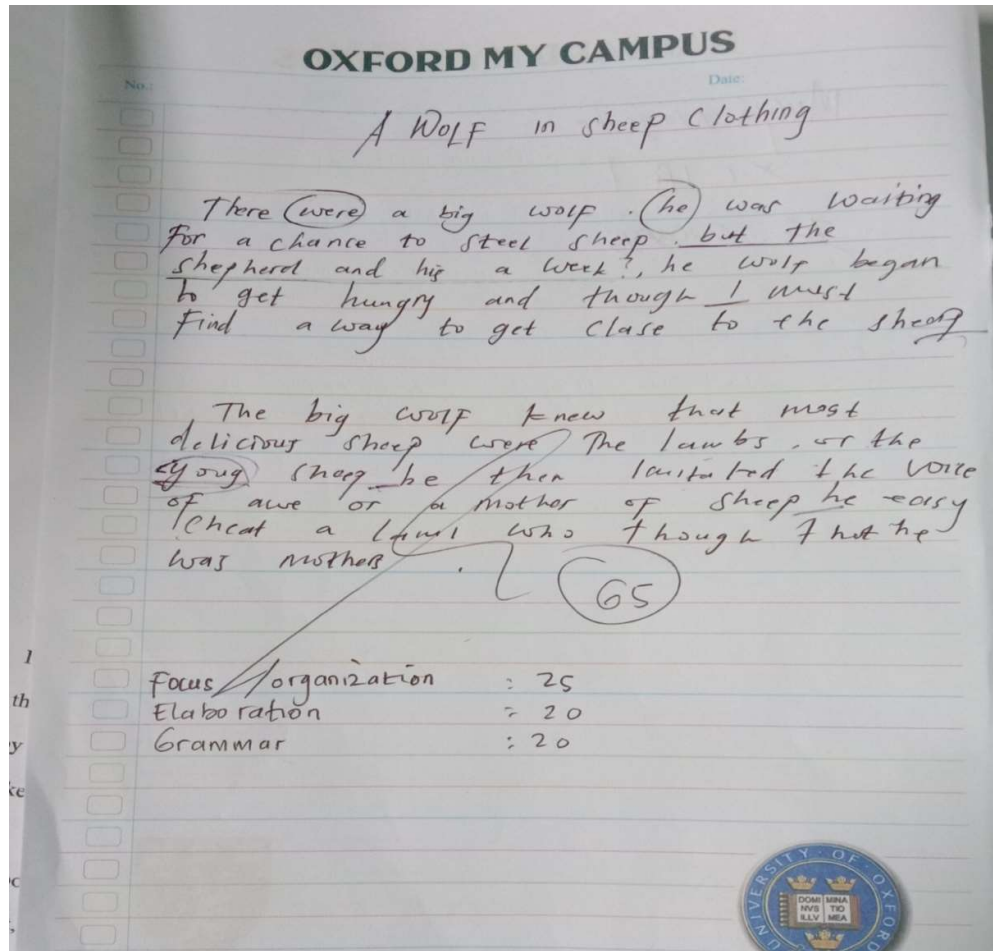 OXFORD MY CAMPUS
No.:
Date:
A WOLF in sheep Clothing
There were a big wolf. he was waiting
For a chance to steel sheep. but the
shepherd and his a week?, he wolf began
to get hungry and though I must
Find a way to get Clase to the sheep
The big woolf knew that most
delicious sheep were The lambs, or the
young sheep he then imitated the voice
of awe or a mother of sheep he easy
Cheat a who though that he
was mothers.
65
Focus/organization : 25
Elaboration : 20
Grammar : 20
1
th
y
ke
UNIVERSITY OF OXFORD
DOMI MINA
NVS TIO
ILLV MEA